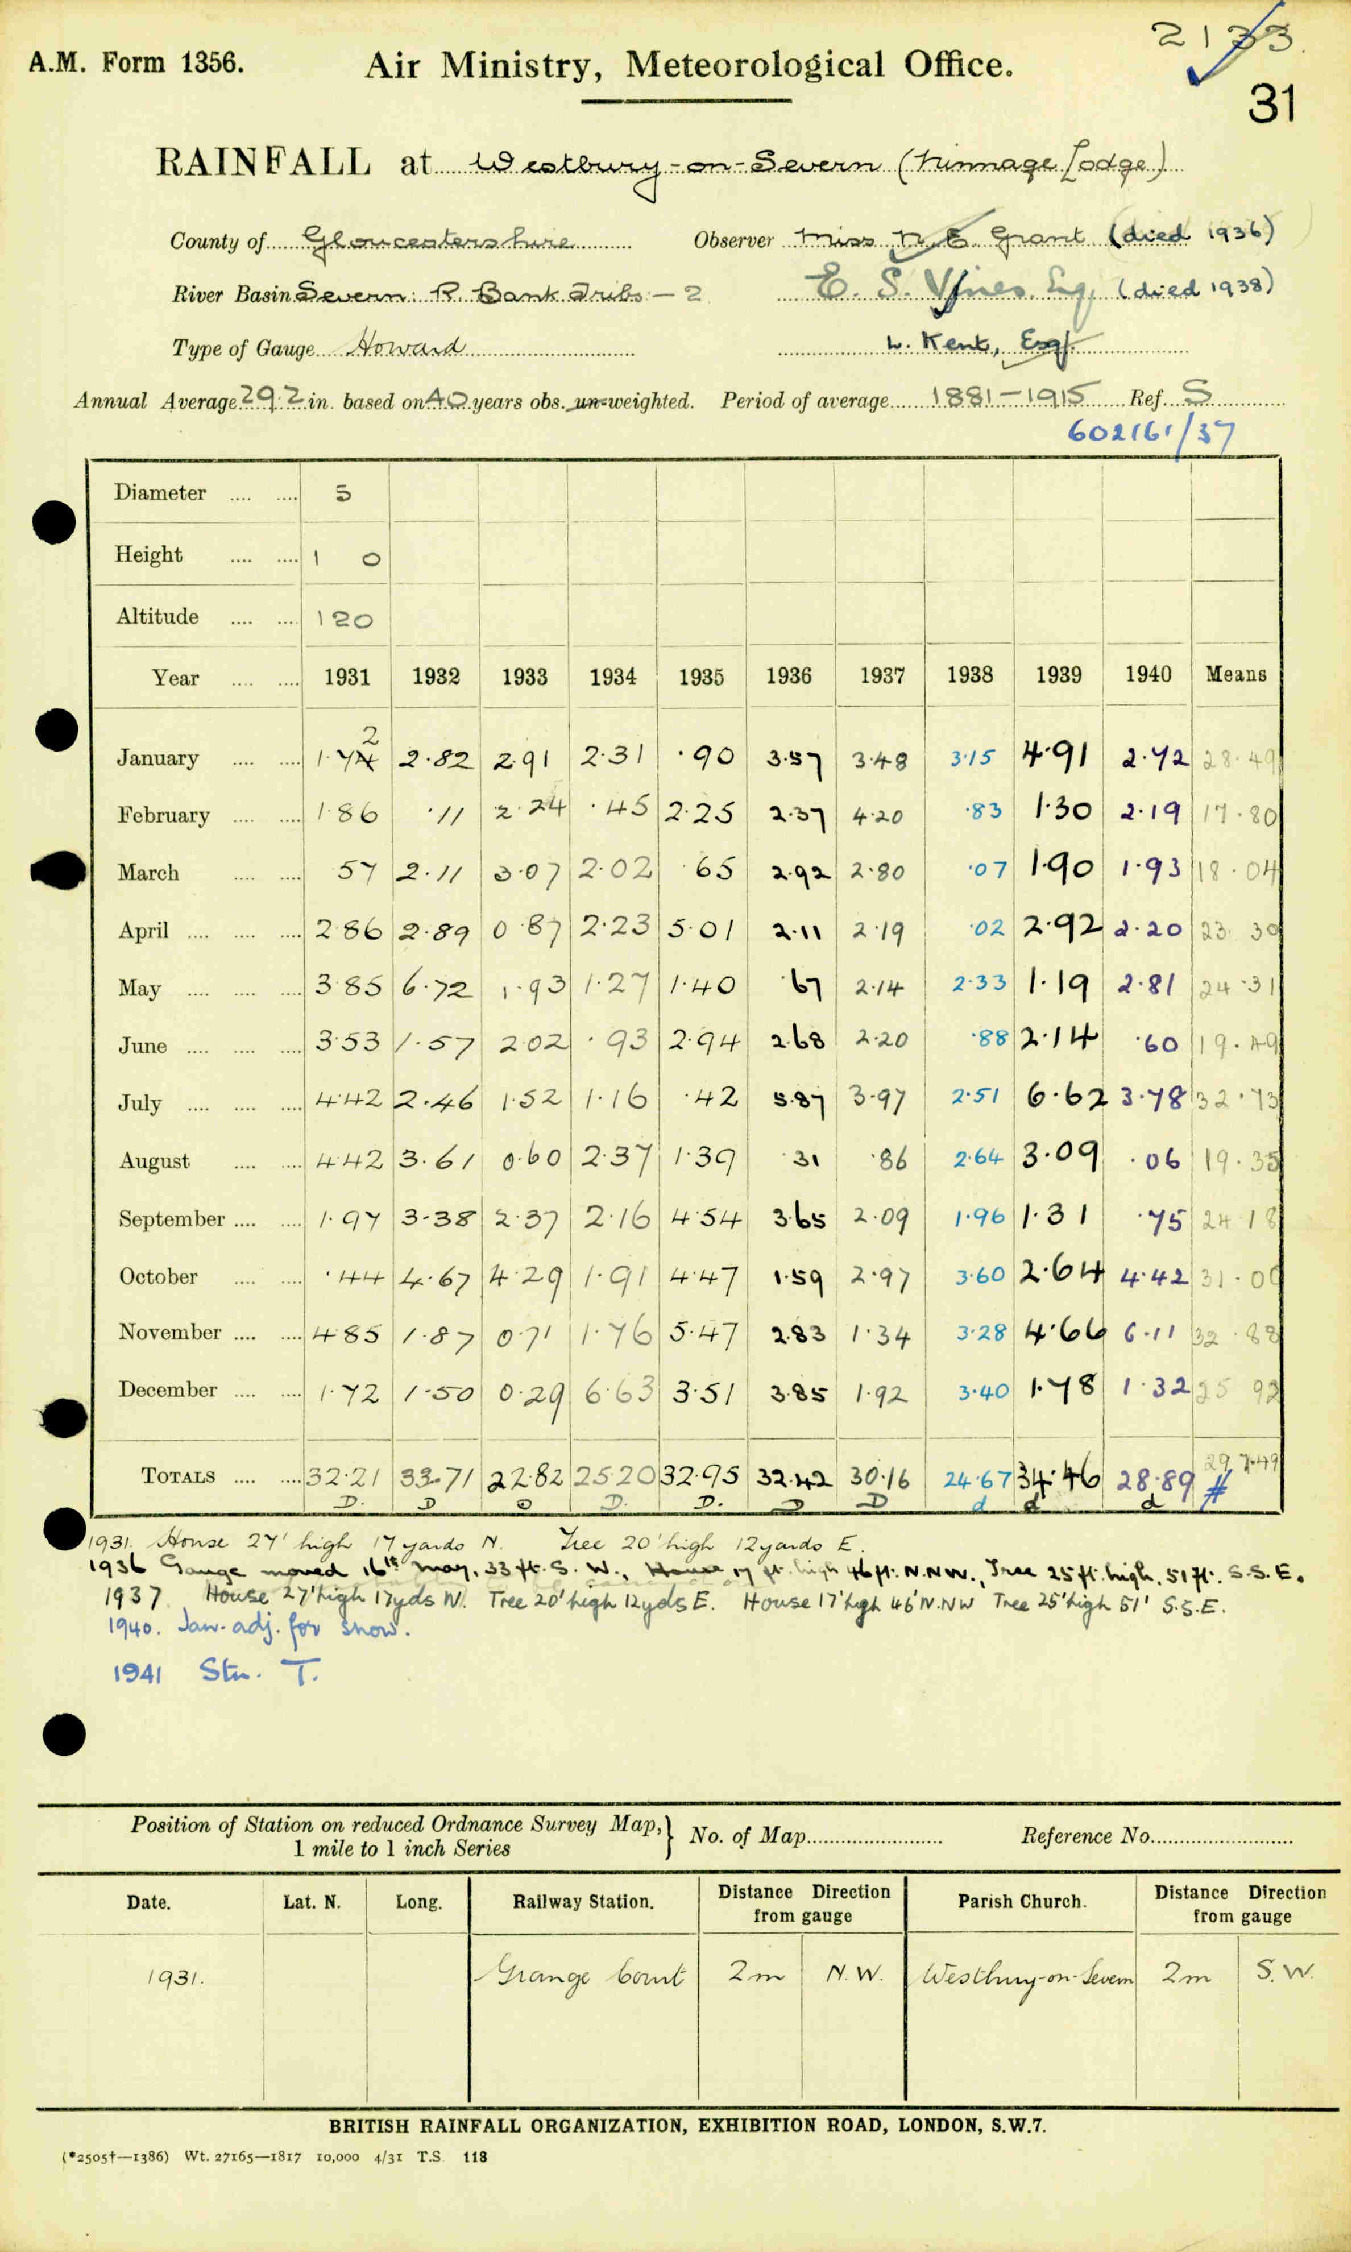 2133
A.M. Form 1356. Air Ministry, Meteorological Office.
31
RAINFALL at Westbury-on-Severn (Ninnage Lodge)
County of Gloucestershire Observer Miss N. E. Grant (died 1936)
River Basin Severn: R. Bank Tribs – 2 E. S. Vines. Esq. (died 1938)
Type of Gauge Howard L. Kent, Esq.
Annual Average 29.2 in. based on 40 years obs. un-weighted. Period of average 1881–1915 Ref. S
602161/37
Diameter 5
Height 1 0
Altitude 120
Year 1931 1932 1933 1934 1935 1936 1937 1938 1939 1940 Means
2
January 1.74 2.82 2.91 2.31 .90 3.57 3.48 3.15 4.91 2.72 28.49
February 1.86 .11 2.24 .45 2.25 2.37 4.20 .83 1.30 2.19 17.80
March 57 2.11 3.07 2.02 .65 2.92 2.80 .07 1.90 1.93 18.04
April 2.86 2.89 0.87 2.23 5.01 2.11 2.19 .02 2.92 2.20 23.30
May 3.85 6.72 1.93 1.27 1.40 .67 2.14 2.33 1.19 2.81 24.31
June 3.53 1.57 2.02 .93 2.94 2.68 2.20 .88 2.14 .60 19.49
July 4.42 2.46 1.52 1.16 .42 5.87 3.97 2.51 6.62 3.78 32.73
August 4.42 3.61 0.60 2.37 1.39 .31 .86 2.64 3.09 .06 19.35
September 1.97 3.38 2.37 2.16 4.54 3.65 2.09 1.96 1.31 .75 24.18
October .44 4.67 4.29 1.91 4.47 1.59 2.97 3.60 2.64 4.42 31.00
November 4.85 1.87 0.71 1.76 5.47 2.83 1.34 3.28 4.66 6.11 32.88
December 1.72 1.50 0.29 6.63 3.51 3.85 1.92 3.40 1.78 1.32 25.92
TOTALS 32.21 33.71 22.82 25.20 32.95 32.42 30.16 24.67 34.46 28.89 # 297.49
D. D D D. D. D D d d d
1931. House 27' high 17 yards N. Tree 20' high 12 yards E.
1936 Gauge moved 16th May, 33 ft. S.W., House 17 ft. high 46 ft. N.N.W., Tree 25 ft. high, 51 ft. S.S.E.
1937 House 27' high 17 yds N. Tree 20' high 12 yds E. House 17' high 46' N.NW Tree 25' high 51' S.S.E.
1940. Jan. adj. for snow.
1941 Stn. T.
Position of Station on reduced Ordnance Survey Map,} No. of Map Reference No.
1 mile to 1 inch Series
Date. Lat. N. Long. Railway Station. Distance Direction from gauge Parish Church. Distance Direction from gauge
1931. Grange Court 2m N.W. Westbury-on-Severn 2m S.W.
BRITISH RAINFALL ORGANIZATION, EXHIBITION ROAD, LONDON, S.W.7.
(*2505†—1386) Wt. 27165—1817 10,000 4/31 T.S. 118